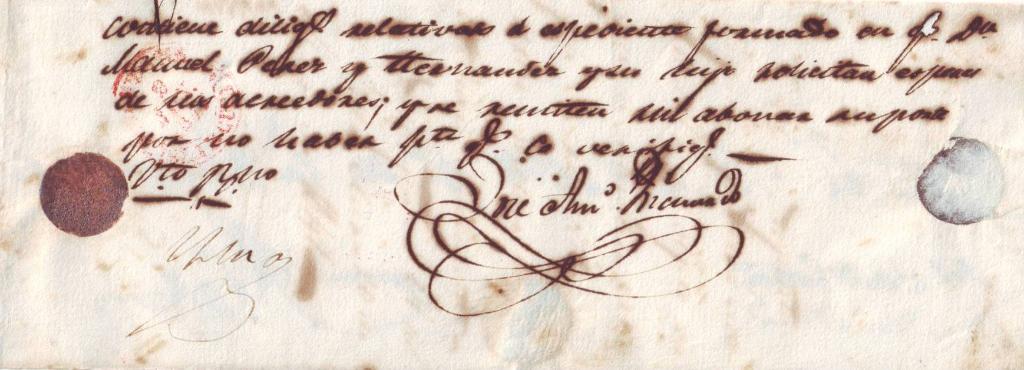 contiene dilig.s relativas á espediente formado en q.e D.n
Manuel Perez y Hernandez y su hijo solicitan esperas
de sus acreedores; y se remiten sin abonar su porte
por no haber p.te q.e lo verifiq.e
V.to B.no
José Ant.o